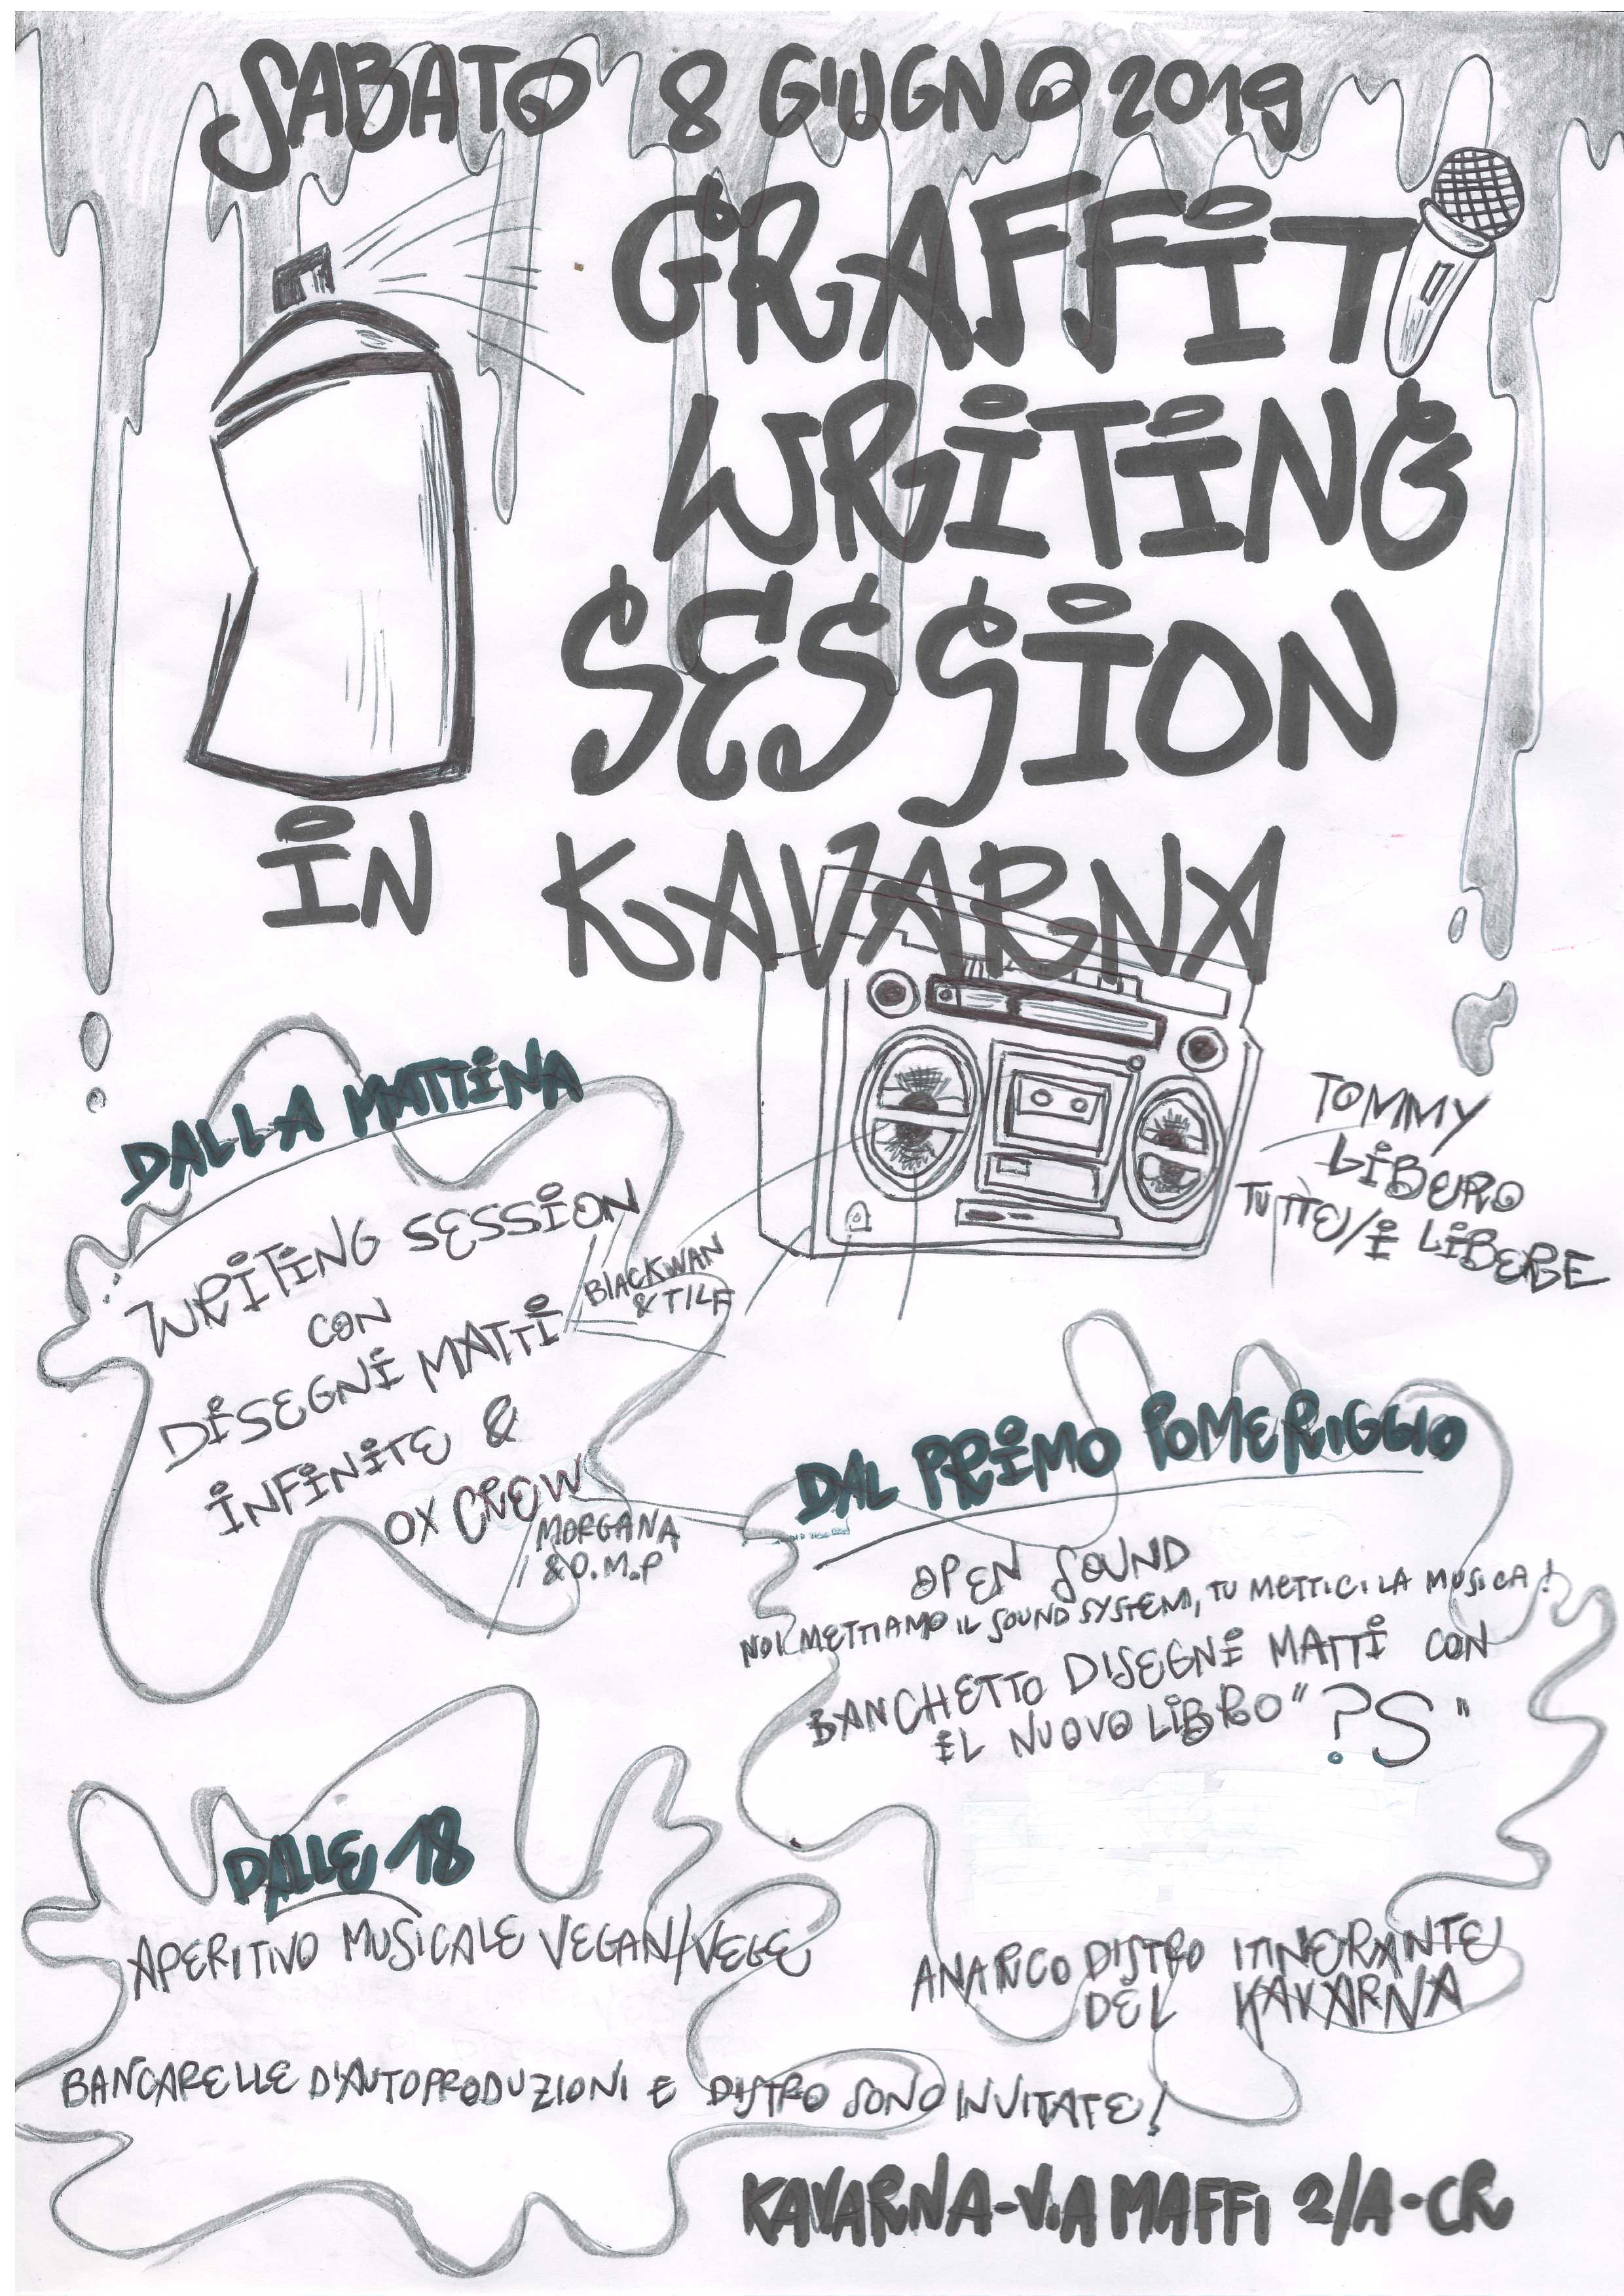 SABATO 8 GIUGNO 2019
GRAFFITI
WRITING
SESSION
IN KAVARNA
DALLA MATTINA
WRITING SESSION
CON
DISEGNI MATTI
BLACKWAN
& TILF
INFINITE &
OX CREW
MORGANA
& O.M.P
TOMMY
LIBERO
TUTTE/I LIBERE
DAL PRIMO POMERIGGIO
OPEN SOUND
NOI METTIAMO IL SOUND SYSTEM, TU METTICI LA MUSICA!
BANCHETTO DISEGNI MATTI CON
IL NUOVO LIBRO "?S"
DALLE 18
APERITIVO MUSICALE VEGAN/VEGE
ANARCO DISTRO ITINERANTE
DEL KAVARNA
BANCARELLE D'AUTOPRODUZIONI E DISTRO SONO INVITATE!
KAVARNA-VIA MAFFI 2/A-CR